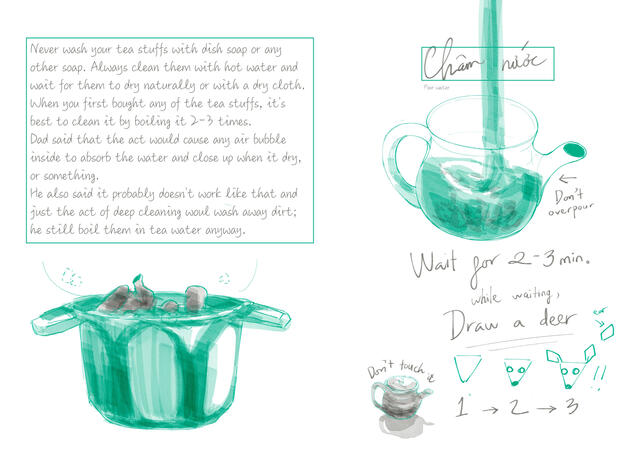 Never wash your tea stuffs with dish soap or any
other soap. Always clean them with hot water and
wait for them to dry naturally or with a dry cloth.
When you first bought any of the tea stuffs, it's
best to clean it by boiling it 2-3 times.
Dad said that the act would cause any air bubble
inside to absorb the water and close up when it dry,
or something.
He also said it probably doesn't work like that and
just the act of deep cleaning woul wash away dirt;
he still boil them in tea water anyway.
Châm nước
Pour water
← Don't
overpour
Wait for 2-3 min.
while waiting,
Draw a deer
ear
Don't touch it
!!
1 → 2 → 3